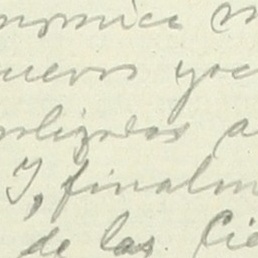 nomica
nuevos yac
olizados a
Y, finalm
de las Cie